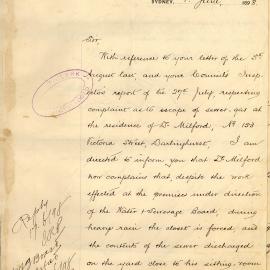 SYDNEY, June, 1898
Sir
With reference to your letter of the 3rd
August last, and your Council's Insp-
ector's report of the 27th July respecting
complaint as to escape of sewer-gas at
the residence of Dr Milford, No 153
Victoria Street, Darlinghurst, I am
directed to inform you that Dr Milford
now complains that, despite the work
effected at the premises under direction
of the Water & Sewerage Board, during
heavy rain the closet is forced and
the contents of the sewer discharged
on the yard close to his sitting-room